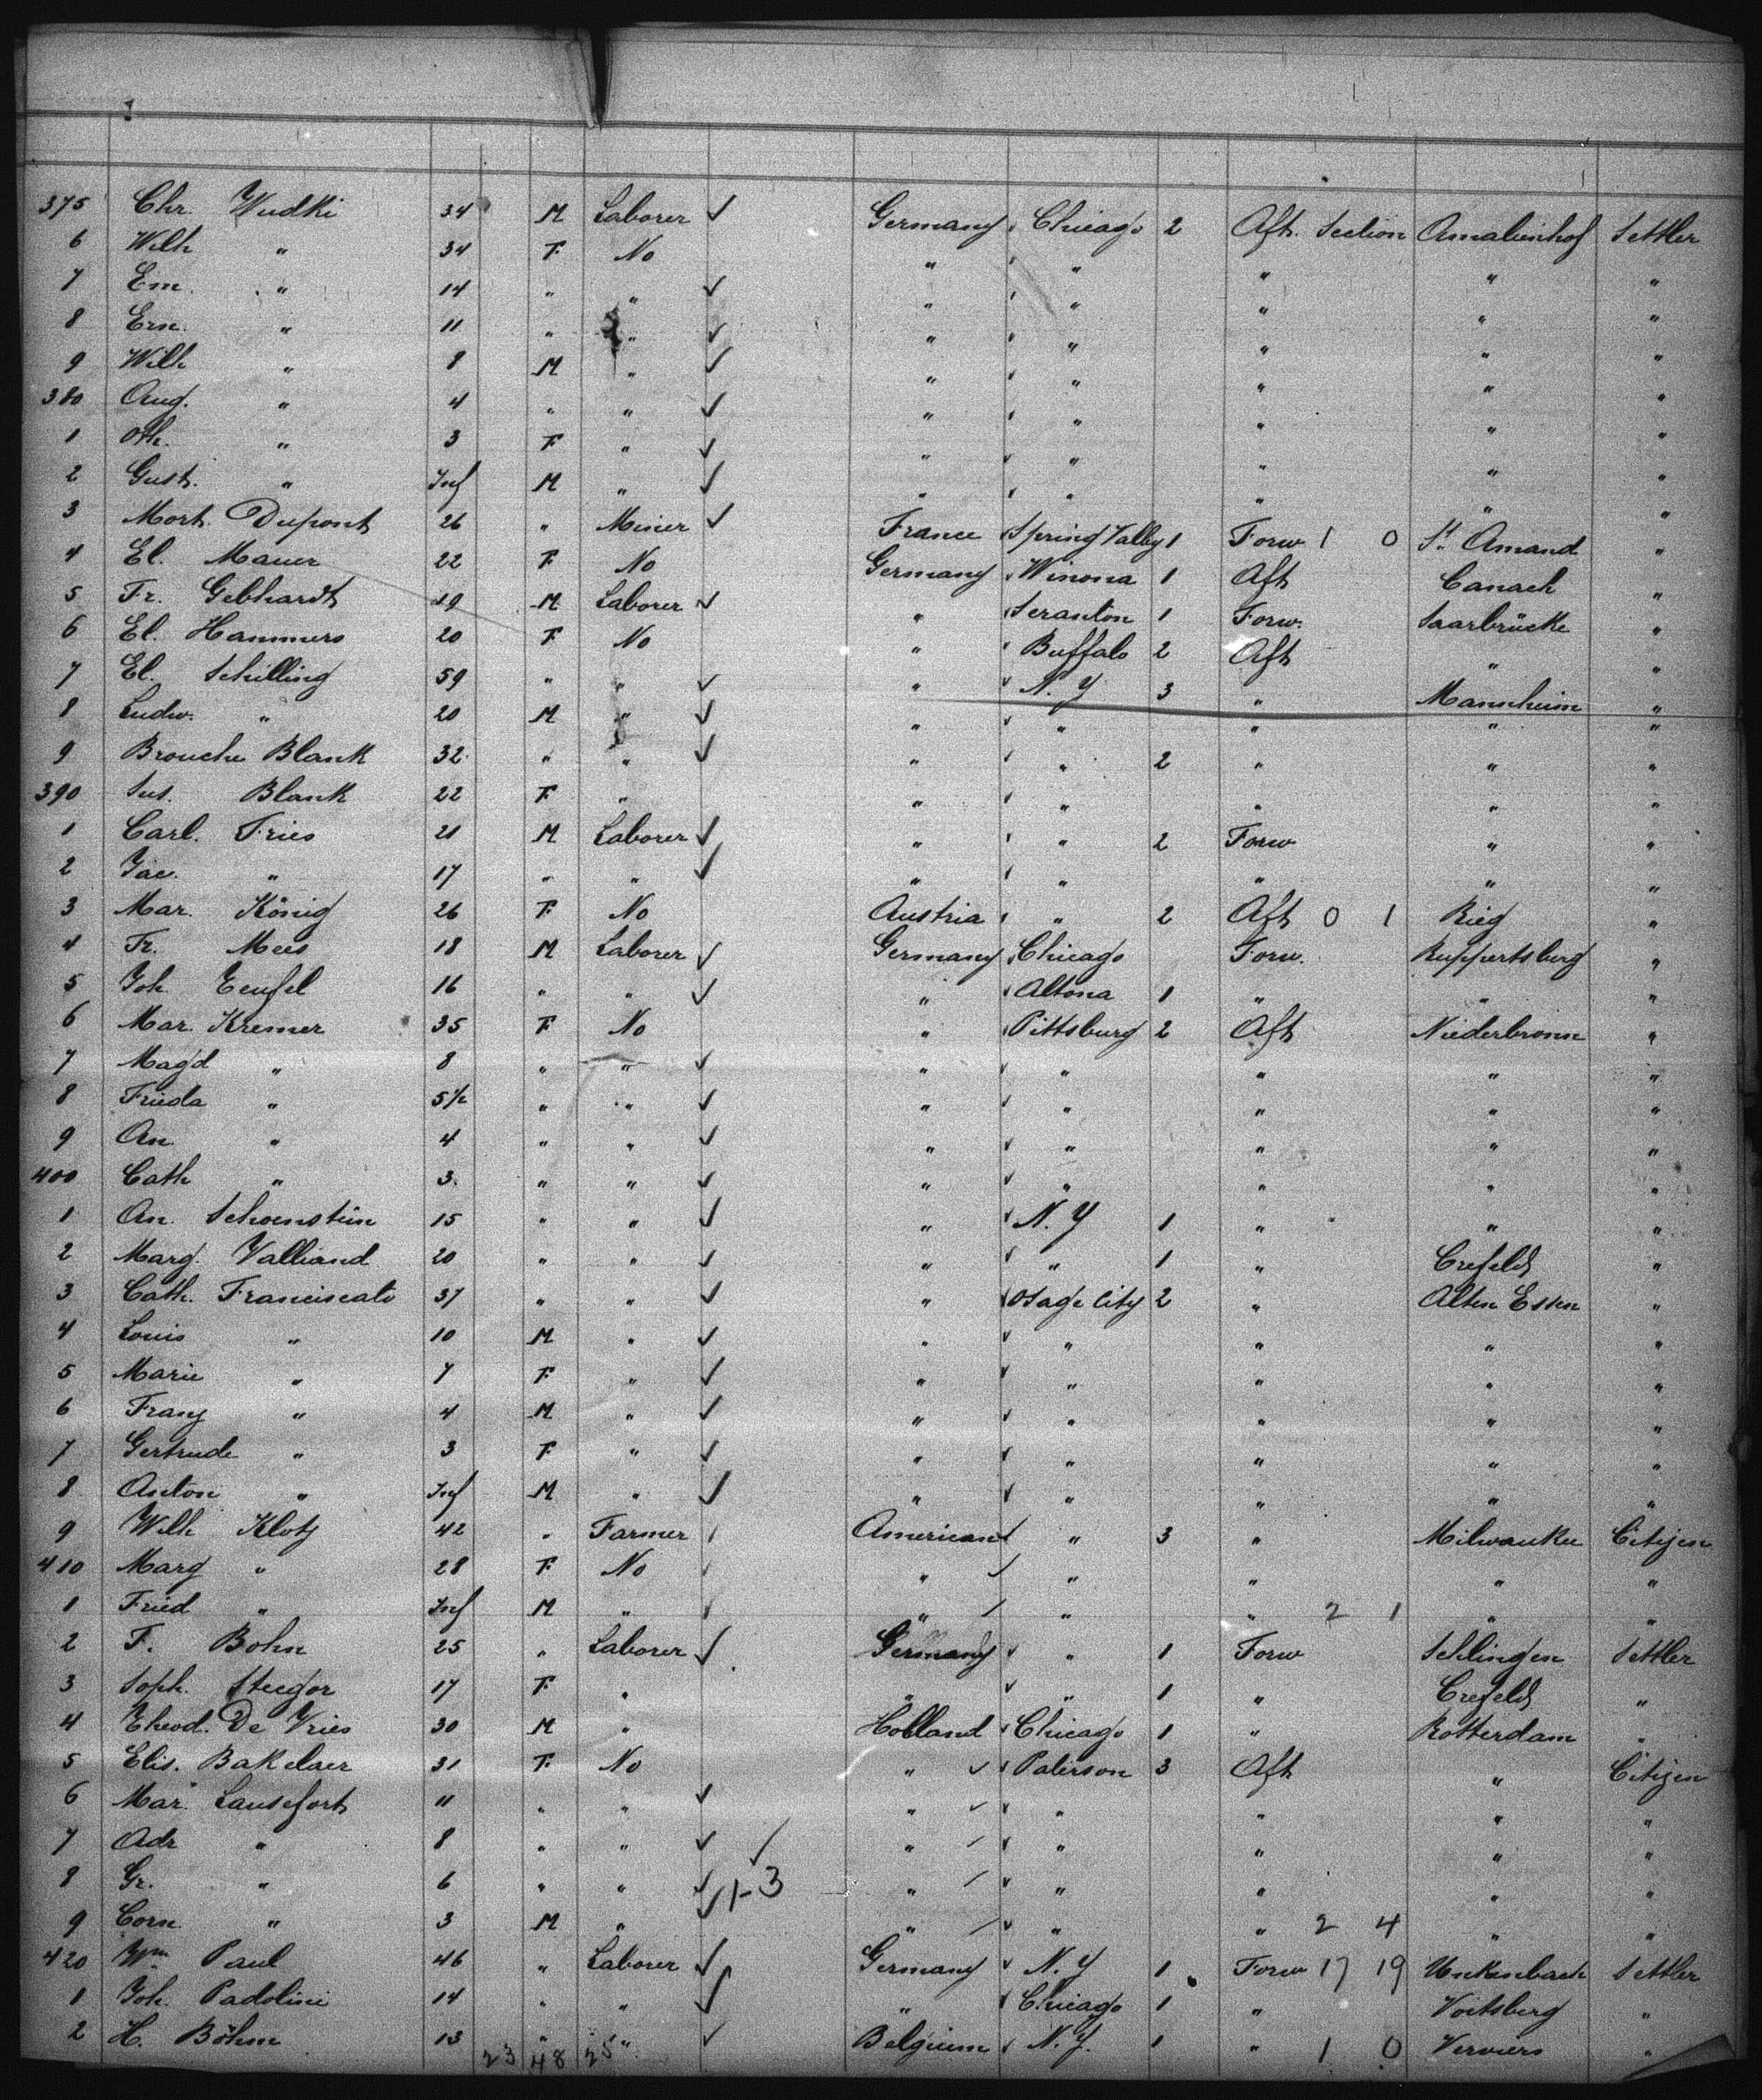 375 Chr. Wudki 34 M Laborer ✓ Germany Chicago 2 Aft. Section Amalienhof Settler
6 Wilh " 34 F No " " " " "
7 Em. " 14 " " ✓ " " " " "
8 Ern. " 11 " " ✓ " " " " "
9 Wilh " 8 M " ✓ " " " " "
380 Aug. " 4 " " ✓ " " " " "
1 Oth. " 3 F " ✓ " " " " "
2 Gust. " Inf M " ✓ " " " " "
3 Mort. Dupont 26 " Miner ✓ France Spring Valley 1 Forw 1 0 St. Amand "
4 El. Mauer 22 F No Germany Winona 1 Aft Canach "
5 Fr. Gebhardt 49 M Laborer ✓ " Scranton 1 Forw. Saarbrücke "
6 El. Hammers 20 F No " Buffalo 2 Aft " "
7 El. Schilling 59 " " ✓ " N. Y 3 " Mannheim "
8 Ludw. " 20 M " ✓ " " " " "
9 Brouche Blank 32 " " ✓ " " 2 " " "
390 Sus. Blank 22 F " " " " " "
1 Carl. Fries 21 M Laborer ✓ " " 2 Forw " "
2 Jac. " 17 " " ✓ " " " " "
3 Mar. König 26 F No Austria " 2 Aft 0 1 Ried "
4 Fr. Mees 18 M Laborer ✓ Germany Chicago Forw. Ruppertsberg "
5 Joh Teufel 16 " " ✓ " Altona 1 " " "
6 Mar. Kremer 35 F No " Pittsburg 2 Aft Niederbronn "
7 Magd " 8 " " ✓ " " " " "
8 Frieda " 5½ " " ✓ " " " " "
9 An. " 4 " " ✓ " " " " "
400 Cath " 3. " " ✓ " " " " "
1 An. Schoenstein 15 " " ✓ " N. Y 1 " " "
2 Marg. Valliand 20 " " ✓ " " 1 " Crefeld "
3 Cath. Franciscati 37 " " ✓ " Osage City 2 " Alten Essen "
4 Louis " 10 M " ✓ " " " " "
5 Marie " 7 F " ✓ " " " " "
6 Franz " 4 M " ✓ " " " " "
7 Gertrude " 3 F " ✓ " " " " "
8 Anton " Inf M " ✓ " " " " "
9 Wilh Klotz 42 " Farmer American " 3 " Milwaukee Citizen
410 Marg " 28 F No " " " " "
1 Fried " Inf M " " " " 2 1 " "
2 F. Bohn 25 " Laborer ✓ Germany " 1 Forw Settler
3 Soph. Steegor 17 F " " " 1 " Crefeld "
4 Theod. De Vries 30 M " Holland Chicago 1 " Rotterdam "
5 Elis. Bakelaer 31 F No " ✓ Paterson 3 Aft " Citizen
6 Mar. Lansefort 11 " " ✓ " ✓ " " " "
7 Adr " 8 " " ✓ " " " " "
8 Gr. " 6 " " ✓ 1-3 " " " " "
9 Corn. " 3 M " ✓ " " " 2 4 " "
420 Wm. Paul 46 " Laborer ✓ Germany N. Y 1 Forw 17 19 Settler
1 Joh. Padolini 14 " " ✓ " Chicago 1 " Voitsberg "
2 H. Böhm 13 " " ✓ Belgium N. Y. 1 " 1 0 Verviers "
23 48 25